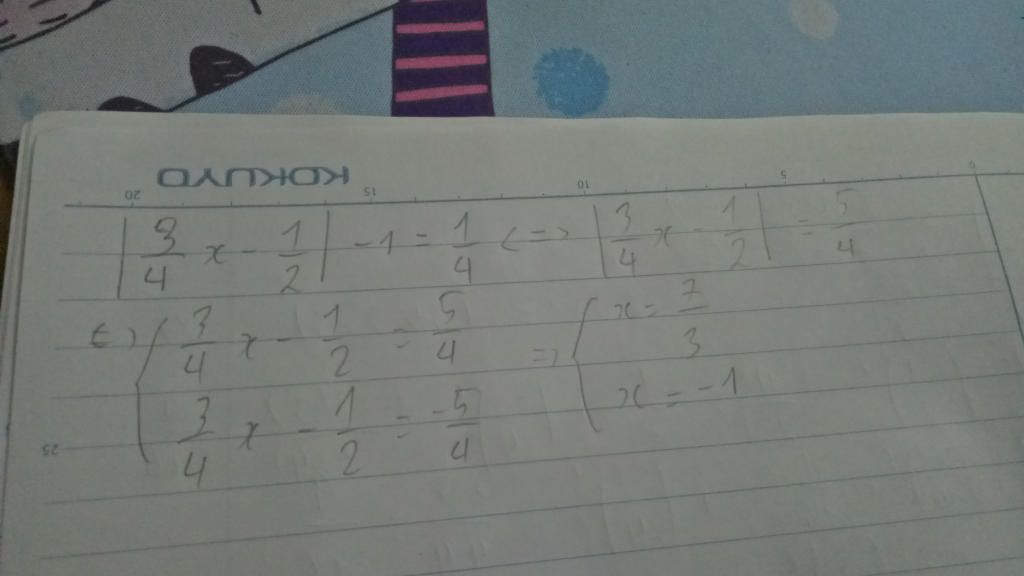 KOKUYO
20 15 10 5 0
|3/4 x - 1/2| - 1 = 1/4 <=> |3/4 x - 1/2| = 5/4
<=> { 3/4 x - 1/2 = 5/4 => { x = 7/3
3/4 x - 1/2 = -5/4 x = -1
25